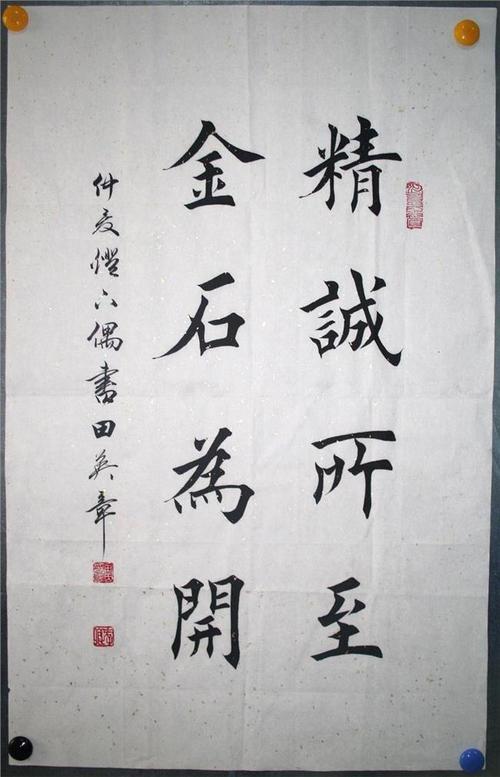 精誠所至
金石為開
仲夏燈下偶書田英章